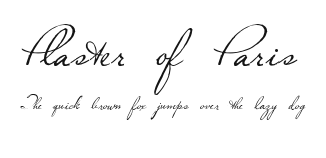 Plaster of Paris
The quick brown fox jumps over the lazy dog